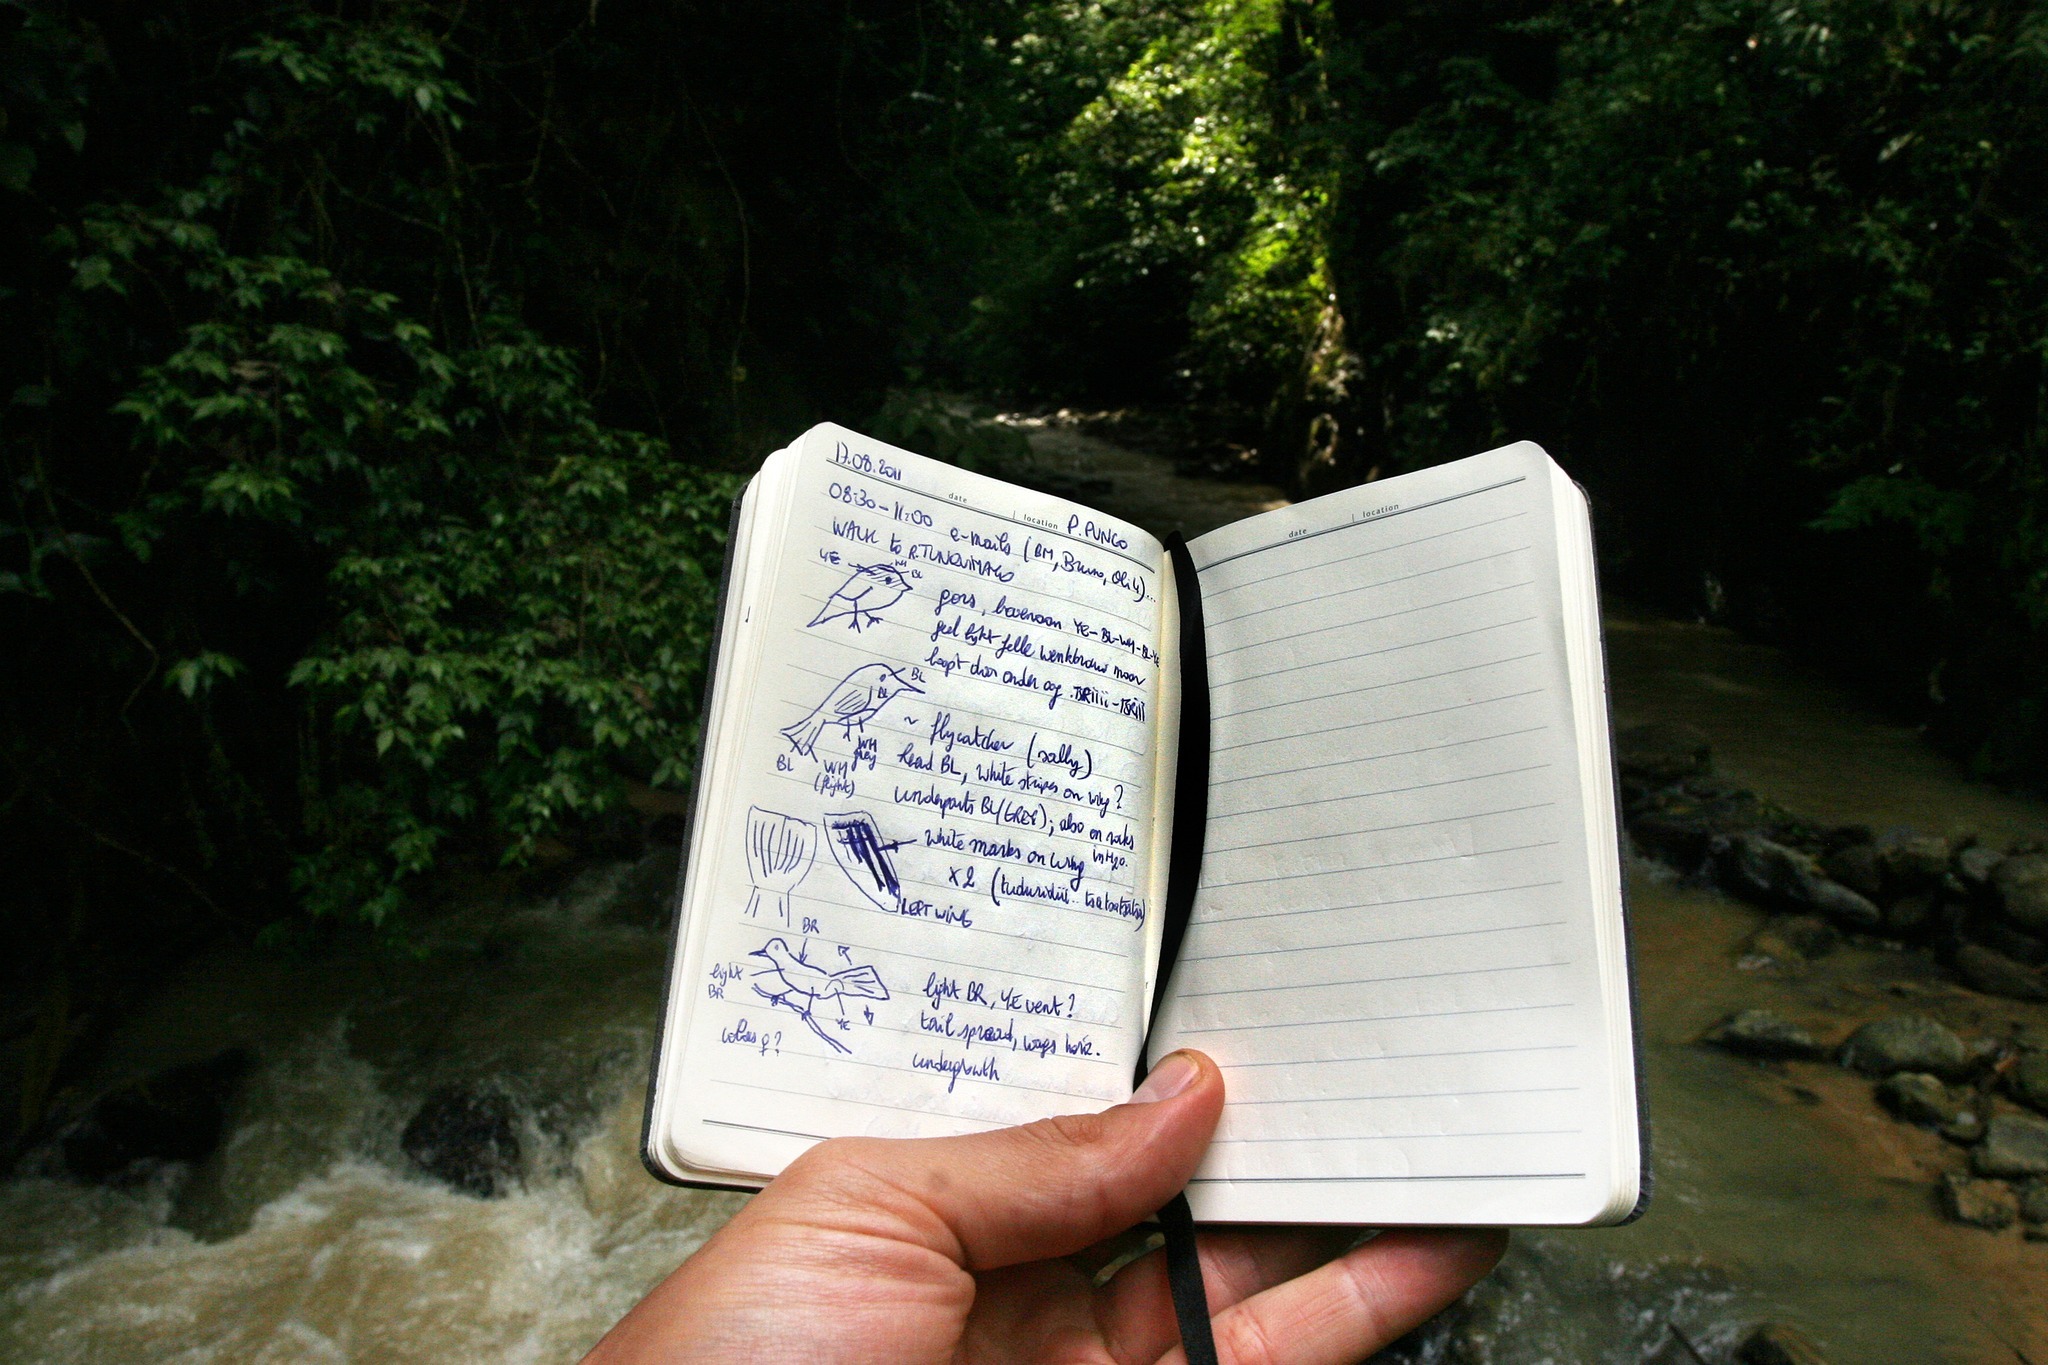 17.08.2011
date | location P. PUNGO
08:30 - 11:00 e-mails (BM, Bruno, Oli 4)...
WALK to R. TUNQUIMAYO
YE WH BL
geors, bovenaan YE-BL-WH-BL-YE
geel light felle wenkbrauw maar
loopt door onder oog. TSRiiii - TSRiii
BL
BL
~ flycatcher (sally)
WH grey
BL
WH (light)
head BL, white stripes on wing?
underparts BL/GREY); also on rocks
in H2O.
white marks on wing
x2
LEFT WING
BR
light BR
light BR, YE vent?
YE
tail spread, wags horiz.
♀?
undergrowth
date | location